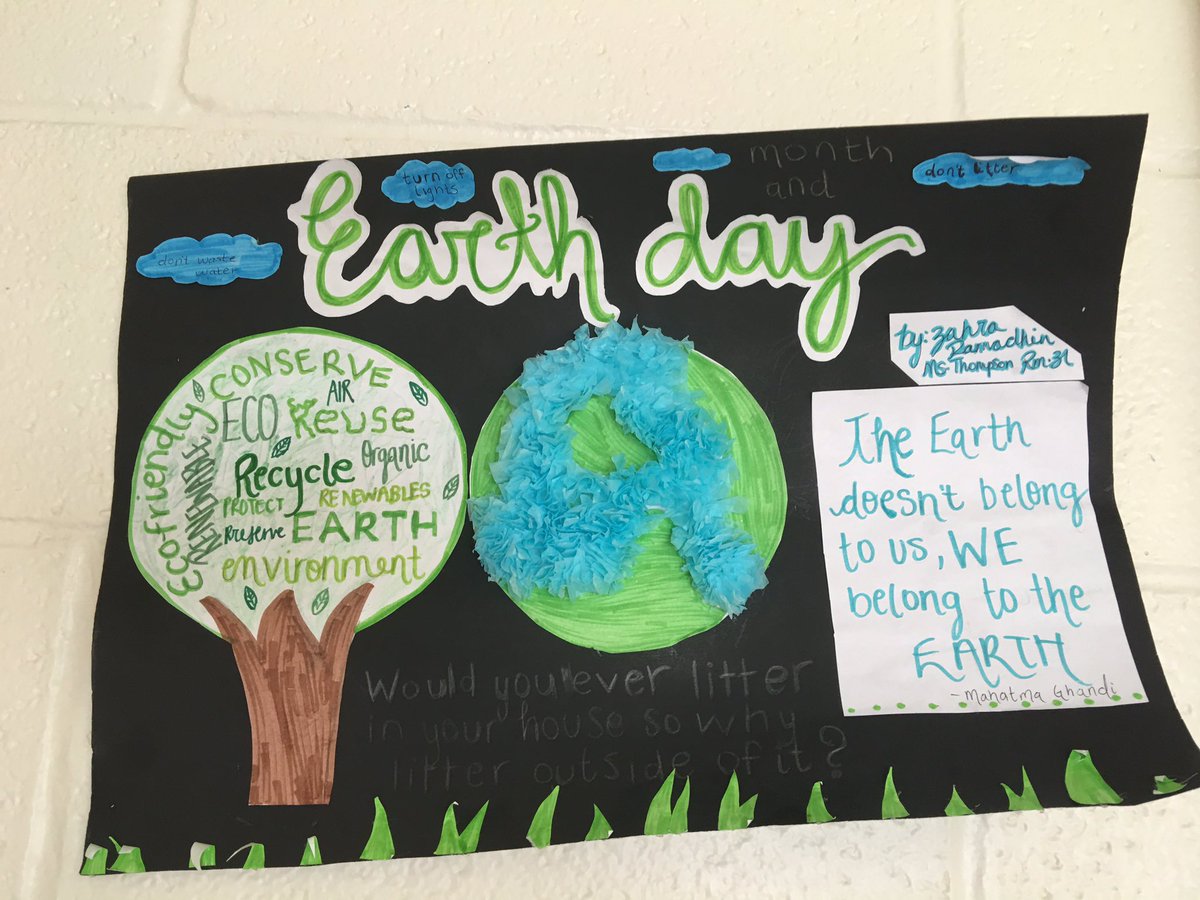 month
and
Earth day
turn off
lights
don't litter
don't waste
water
by: Zahra
Ramadhin
Ms. Thompson Rm:31
Eco-friendly
RENEWABLE
CONSERVE
AIR
ECO Reuse
Recycle Organic
PROTECT RENEWABLES
Preserve EARTH
environment
The Earth
doesn't belong
to us, WE
belong to the
EARTH
-Mahatma Ghandi
Would you ever litter
in your house so why
litter outside of it?